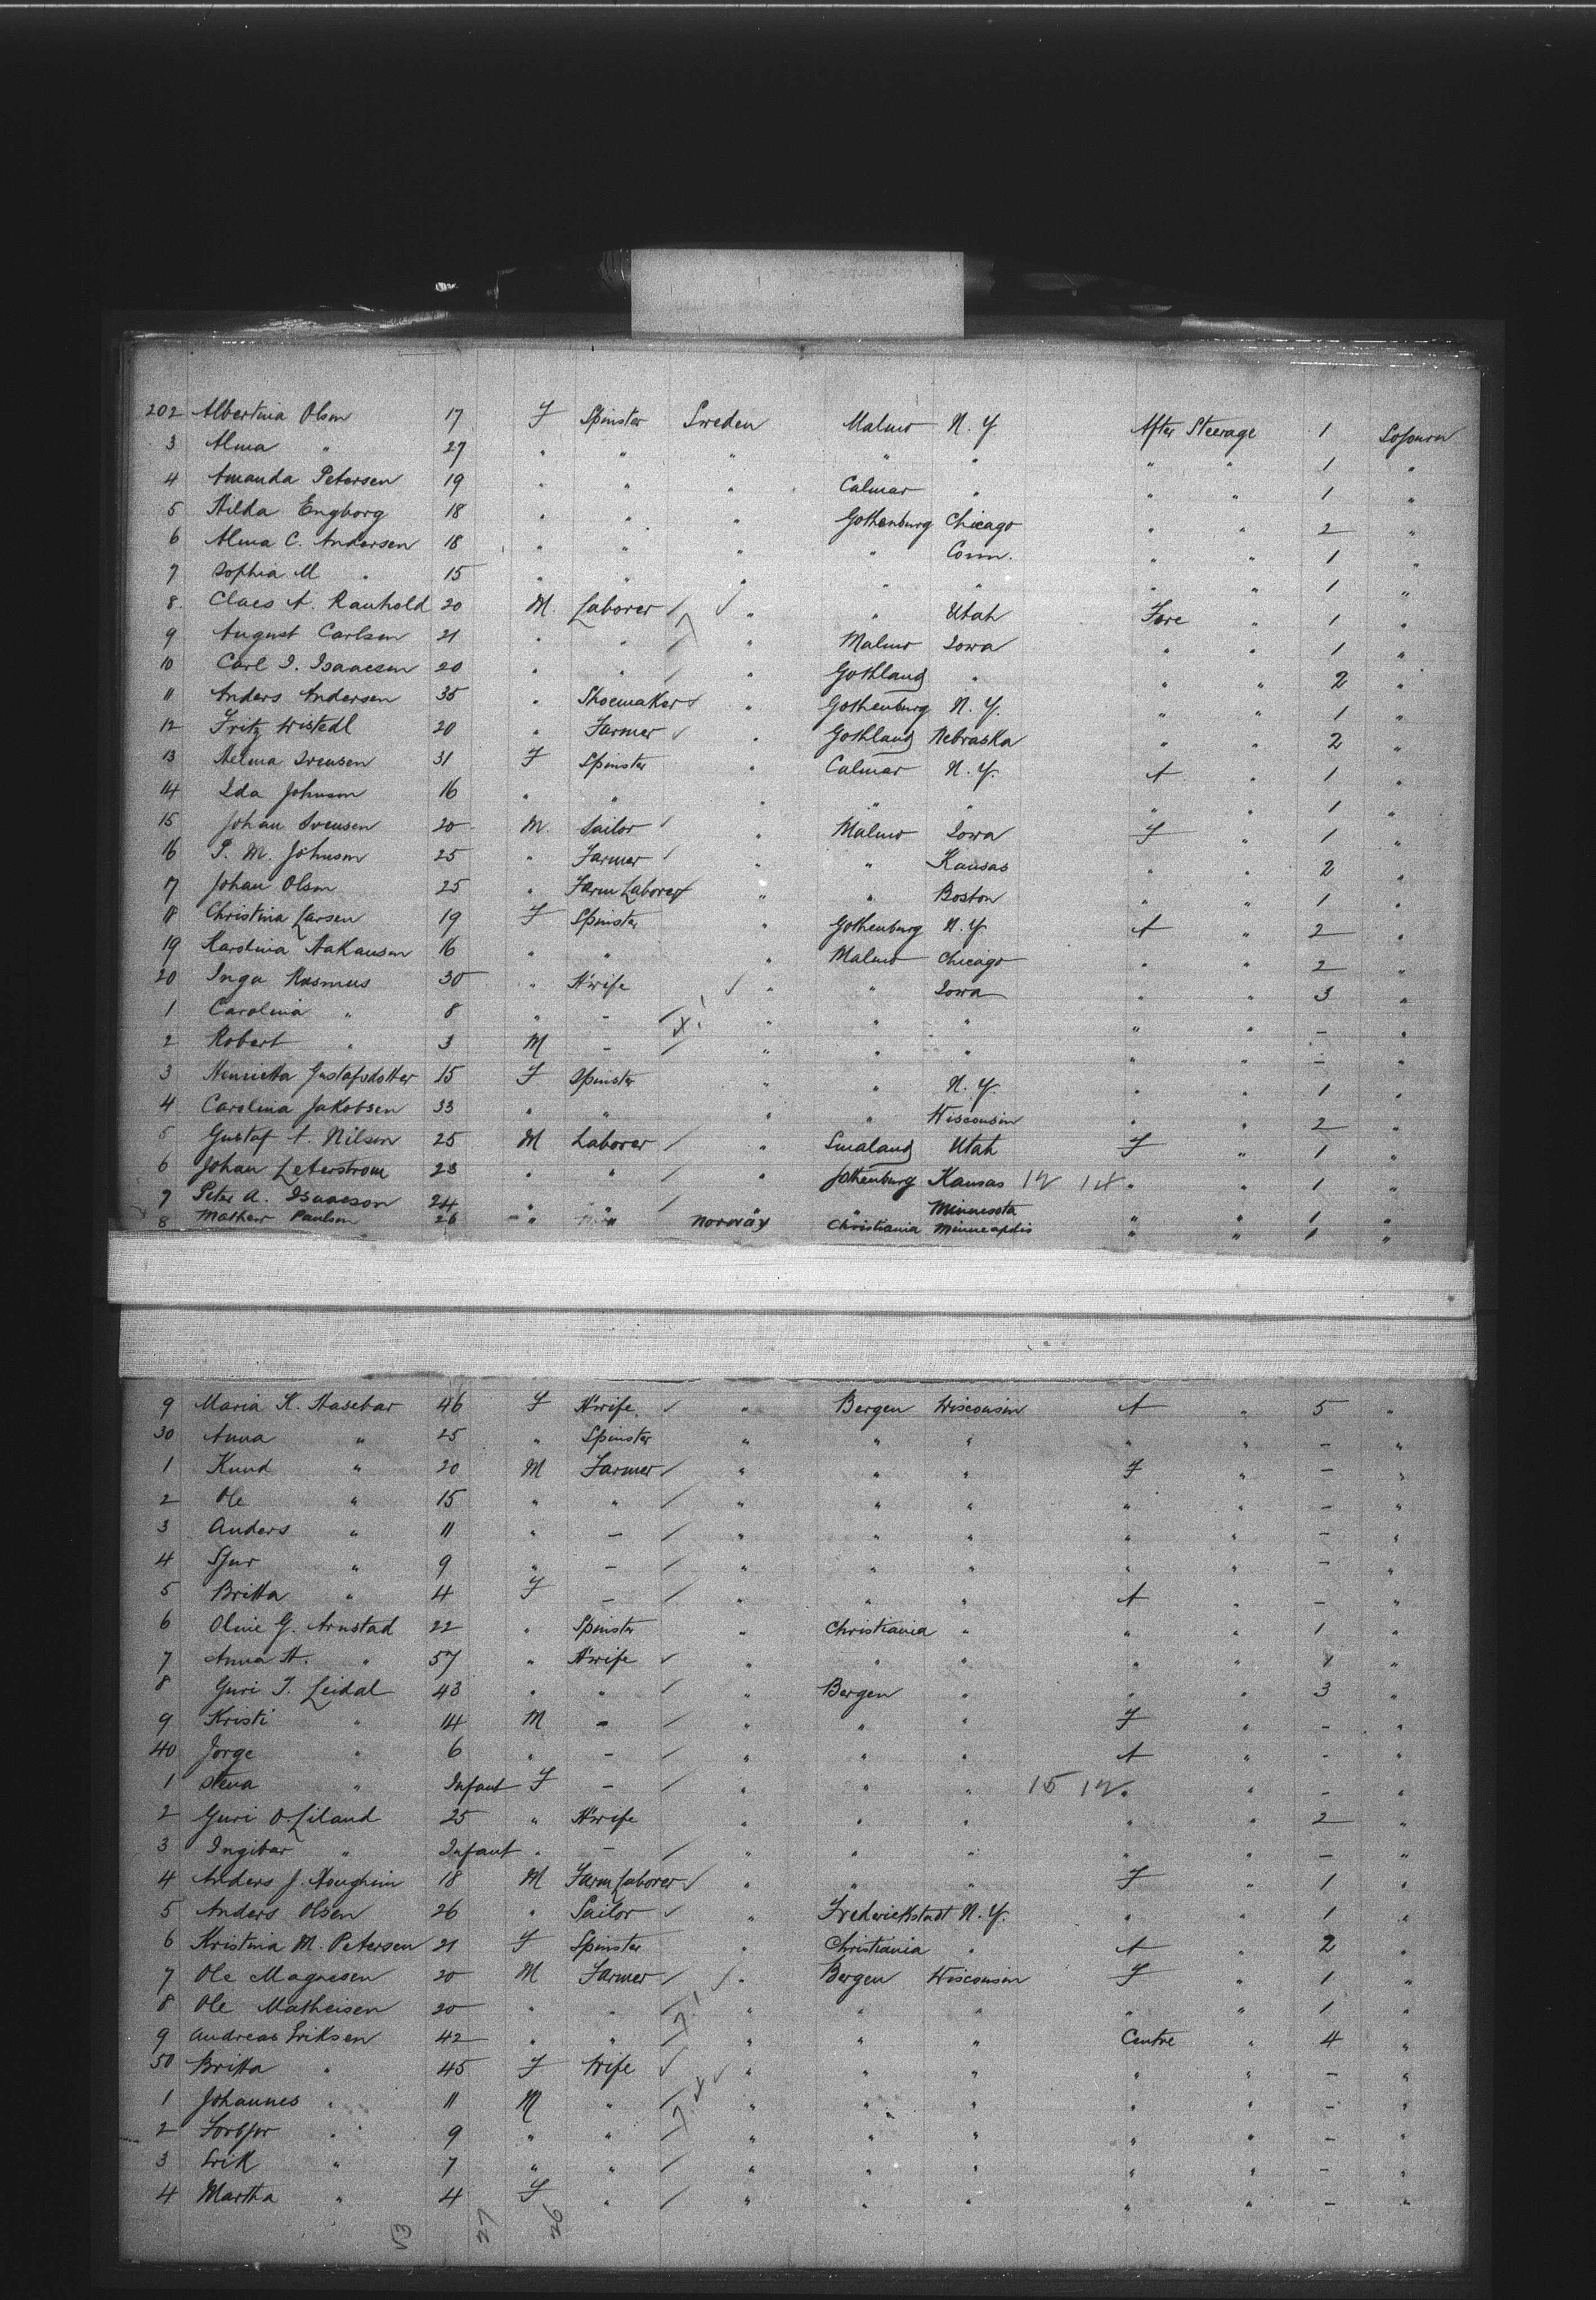 202 Albertina Olsen 17 F Spinster Sweden Malmo N.Y. After Steerage 1 Sojourn
3 Alma " 27 " " " " " " " 1 "
4 Amanda Petersen 19 " " " Calmar " " " 1 "
5 Hilda Engborg 18 " " " Gothenburg Chicago " " 2 "
6 Alma C. Andersen 18 " " " " Conn. " " 1 "
7 Sophia M " 15 " " " " " " " 1 "
8 Claes A. Rauhold 20 M. Laborer / ✓ " " Utah Fore " 1 "
9 August Carlsen 21 " " / " Malmo Iowa " " 1 "
10 Carl I. Isaacsen 20 " " / " Gothland " " " 2 "
11 Anders Andersen 35 " Shoemaker ✓ " Gothenburg N.Y. " " 1 "
12 Fritz Wistedl 20 " Farmer ✓ " Gothland Nebraska " " 2 "
13 Helma Svensen 31 F Spinster " Calmar N.Y. A " 1 "
14 Ida Johnson 16 " " " " " " " 1 "
15 Johan Svensen 20 M. Sailor / " Malmo Iowa F " 1 "
16 P. M. Johnson 25 " Farmer / " " Kansas " " 2 "
17 Johan Olsen 25 " Farm Laborer / " " Boston " " 1 "
18 Christina Larsen 19 F Spinster " Gothenburg N.Y. A " 2 "
19 Karolina Hakansen 16 " " " Malmo Chicago " " 2 "
20 Inga Rasmus 30 " H'wife ✓ " " Iowa " " 3 "
1 Carolina " 8 " - / " " " " " - "
2 Robert " 3 M - / " " " " " - "
3 Henrietta Gustafsdotter 15 F Spinster " " N.Y. " " 1 "
4 Carolina Jakobsen 33 " " " " Wisconsin " " 2 "
5 Gustaf A. Nilsen 25 M Laborer / " Smaland Utah F " 1 "
6 Johan Zeterstrom 23 " " / " Gothenburg Kansas 12 14 " " 1 "
7 Peter A. Isaacson 24 " " / " " Minnesota " " 1 "
8 Mathew Paulsen 26 " " Norway Christiania Minneapolis " " 1 "
9 Maria K. Hasebar 46 F H'wife ✓ " Bergen Wisconsin A " 5 "
30 Anna " 25 " Spinster " " " " " - "
1 Knud " 20 M Farmer / " " " F " - "
2 Ole " 15 " " / " " " " " - "
3 Anders " 11 " - / " " " " " - "
4 Sjur " 9 " - / " " " " " - "
5 Britta " 4 F - / " " " A " - "
6 Oline G. Arnstad 22 " Spinster " Christiania " " " 1 "
7 Anna H. " 57 " H'wife ✓ " " " " " 1 "
8 Guri T. Leidal 43 " " / " Bergen " " " 3 "
9 Kristi " 14 M - / " " " F " - "
40 Jorge " 6 " - / " " " A " - "
1 Stena " Infant F - / " " " 15 12 " " - "
2 Guri O. Liland 25 " H'wife " " " " " 2 "
3 Ingibor " Infant " - / " " " " " - "
4 Anders J. Hougheim 18 M Farm Laborer ✓ " " " F " 1 "
5 Anders Olsen 26 " Sailor ✓ " Frederickstadt N.Y. " " 1 "
6 Kristina M. Petersen 21 F Spinster " Christiania " A " 2 "
7 Ole Magnesen 20 M Farmer / ✓ " Bergen Wisconsin F " 1 "
8 Ole Matheisen 20 " " / " " " " " 1 "
9 Andreas Eriksen 42 " " / " " " Centre " 4 "
50 Britta " 45 F Wife ✓ ✓ " " " " " - "
1 Johannes " 11 M " / " " " " " - "
2 Torbjor " 9 " " / " " " " " - "
3 Erik " 7 " " / " " " " " - "
4 Martha " 4 F " / " " " " " - "
53 27 26